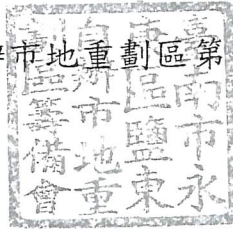 市地重劃區第
臺南市永
康區鹽東
自辦市地重
劃區籌備會